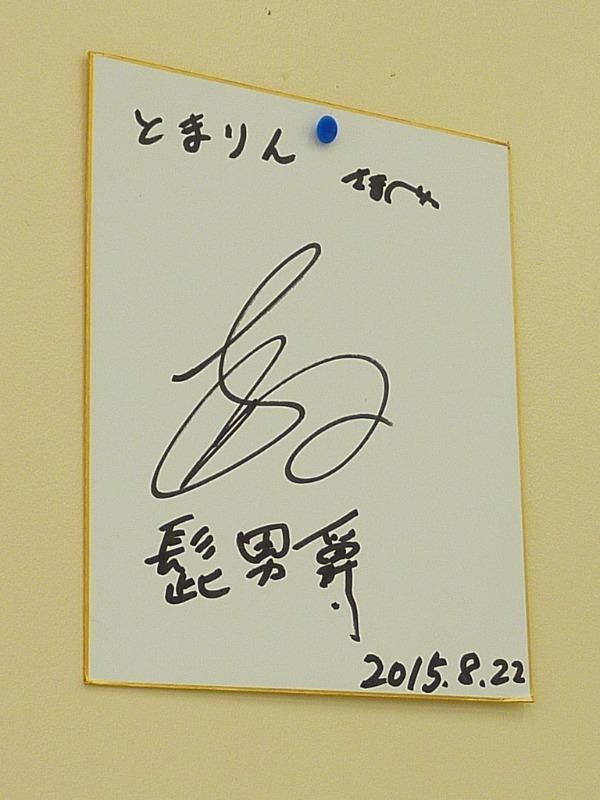 とまりん
髭男爵
2015.8.22